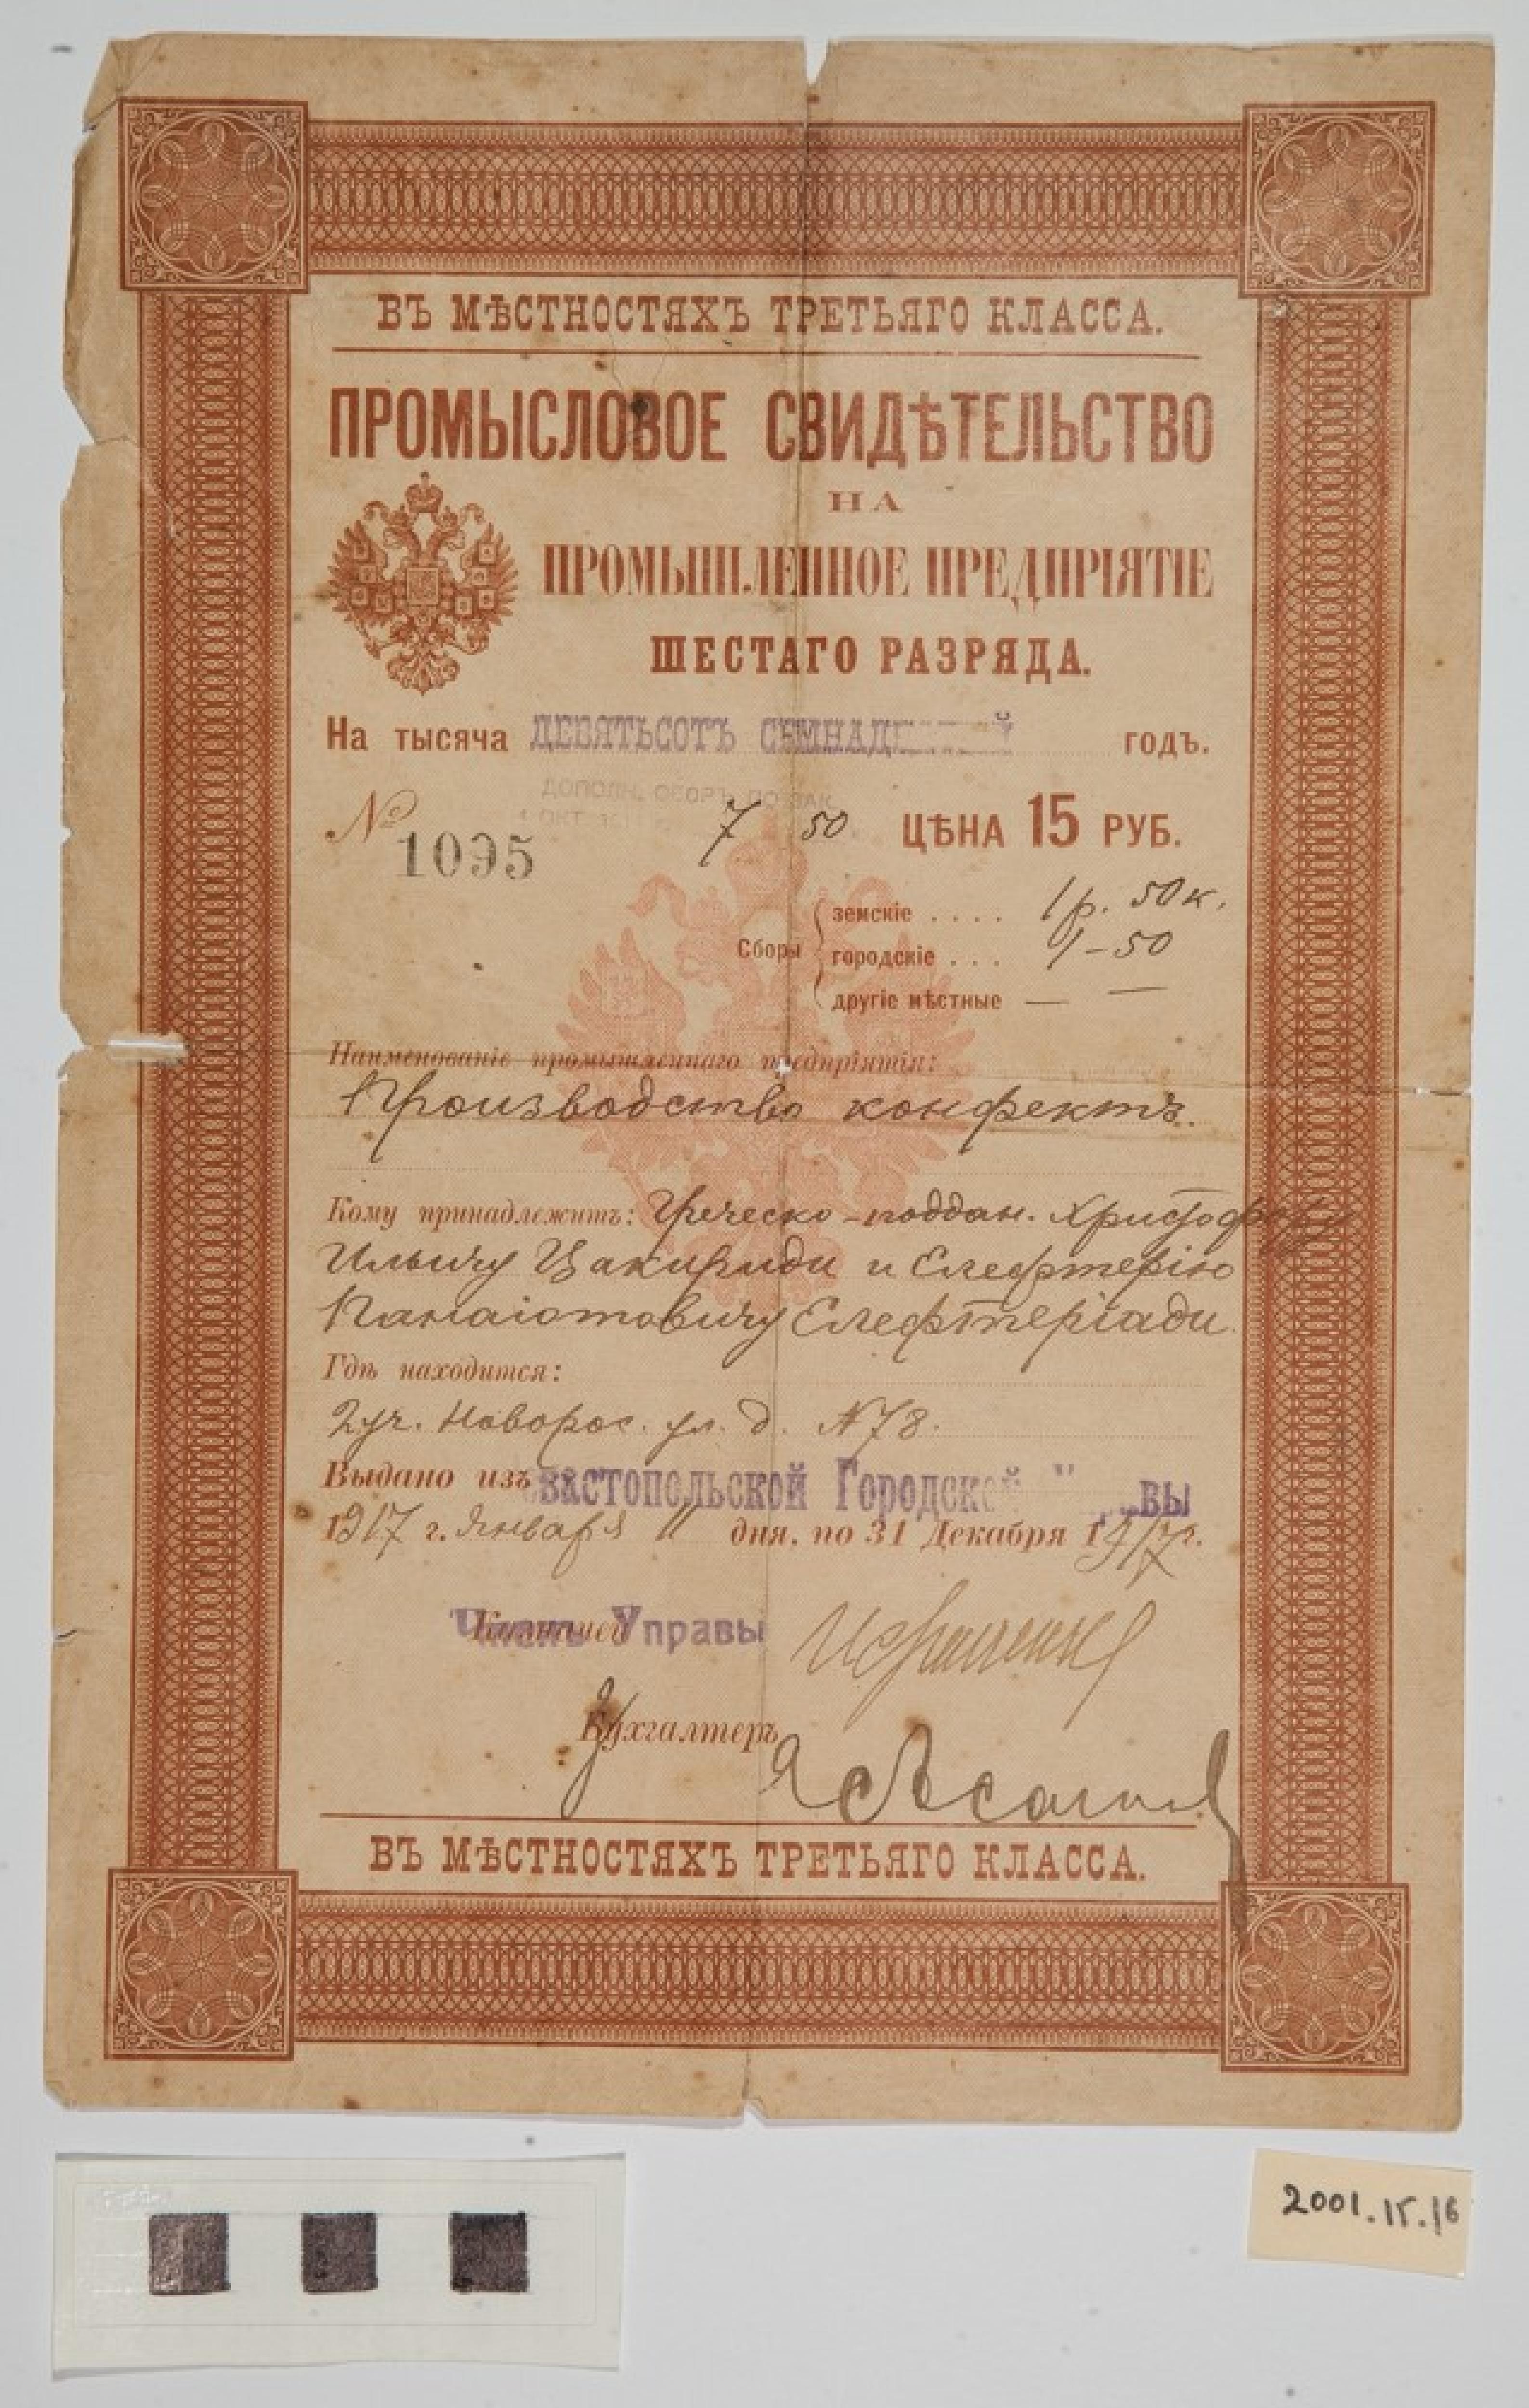 ВЪ МѢСТНОСТЯХЪ ТРЕТЬЯГО КЛАССА.
ПРОМЫСЛОВОЕ СВИДѢТЕЛЬСТВО
НА
ПРОМЫШЛЕННОЕ ПРЕДПРІЯТІЕ
ШЕСТАГО РАЗРЯДА.
На тысяча ДЕВЯТЬСОТЪ годъ.
ДОПОЛН. СБОРЪ ПО ЗАК.
№ 1095 7 50 ЦѢНА 15 РУБ.
Сборы
земскіе .... 1 р. 50 к.
городскіе ... 1-50
другіе мѣстные — —
Наименованіе промышленнаго предпріятія:
Производство конфектъ.
Кому принадлежитъ: Греческо-поддан. Христофору
Ильичу Цакириди и Елефтерію
Панаіотовичу Елефтеріади.
Гдѣ находится:
2 уч. Новорос. ул. д. №78.
Выдано изъ Севастопольской Городской
1917 г. Января 11 дня, по 31 Декабря 1917 г.
Членъ Управы
Бухгалтеръ
ВЪ МѢСТНОСТЯХЪ ТРЕТЬЯГО КЛАССА.
2001.15.16